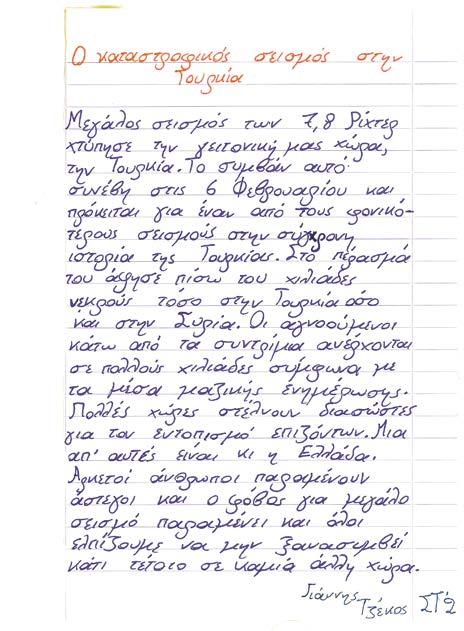 Ο καταστροφικός σεισμός στην
Τουρκία
Μεγάλος σεισμός των 7,8 Ρίχτερ
χτύπησε την γειτονική μας χώρα,
την Τουρκία. Το συμβάν αυτό
συνέβη στις 6 Φεβρουαρίου και
πρόκειται για έναν από τους φονικό-
τερους σεισμούς στην σύγχρονη
ιστορία της Τουρκίας. Στο πέρασμά
του άφησε πίσω του χιλιάδες
νεκρούς τόσο στην Τουρκία όσο
και στην Συρία. Οι αγνοούμενοι
κάτω από τα συντρίμια ανέρχονται
σε πολλούς χιλιάδες σύμφωνα με
τα μέσα μαζικής ενημέρωσης.
Πολλές χώρες στέλνουν διασώστες
για τον εντοπισμό επιζόντων. Μια
απ' αυτές είναι κι η Ελλάδα.
Αρκετοί άνθρωποι παραμένουν
άστεγοι και ο φόβος για μεγάλο
σεισμό παραμένει και όλοι
ελπίζουμε να μην ξανασυμβεί
κάτι τέτοιο σε καμία άλλη χώρα.
Γιάννης
Τζέκος ΣΤ2